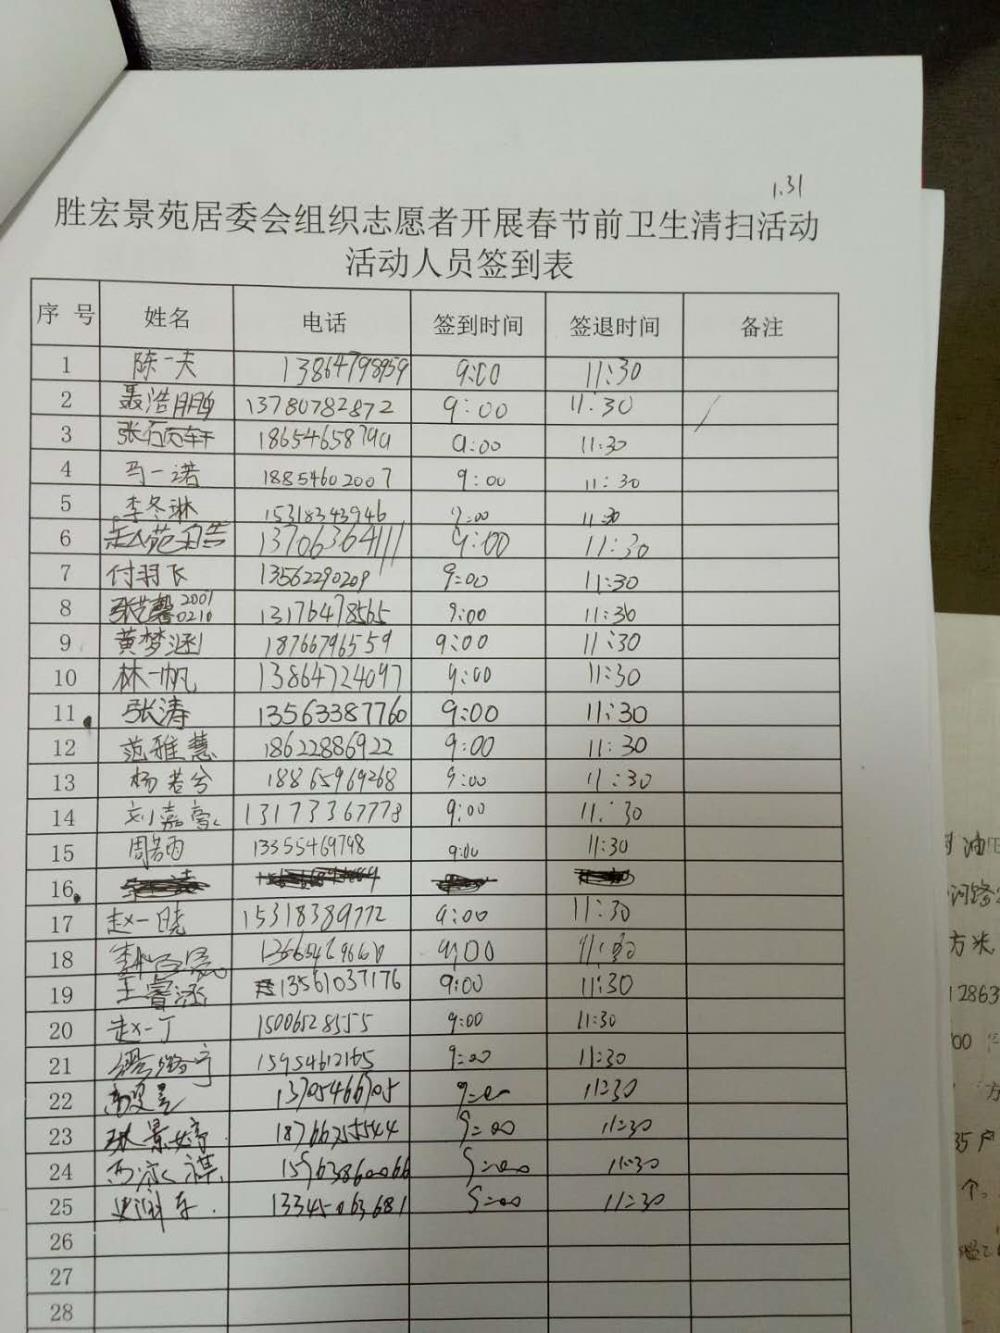 1.31
胜宏景苑居委会组织志愿者开展春节前卫生清扫活动
活动人员签到表
序号 姓名 电话 签到时间 签退时间 备注
1 陈一夫 13864798959 9:00 11:30
2 聂浩鹏 13780782872 9:00 11:30
3 9:00 11:30
4 马一诺 18854602007 9:00 11:30
5 李冬琳 15318343946 9:00 11:30
6 13706364111 9:00 11:30
7 付羽飞 13562290209 9:00 11:30
8 2001 0210 13176478565 9:00 11:30
9 黄梦涵 18766796559 9:00 11:30
10 林一帆 13864724097 9:00 11:30
11 张涛 13563387760 9:00 11:30
12 范雅慧 18622886922 9:00 11:30
13 杨若兮 18865969268 9:00 11:30
14 刘嘉 13173367778 9:00 11:30
15 周若雨 13355469798 9:00 11:30
16
17 赵一晓 15318389772 9:00 11:30
18 9:00
19 王睿涵 13561037176 9:00 11:30
20 赵一丁 15006528555 9:00 11:30
21 15954612165 9:00 11:30
22 11:30
23 9:00 11:30
24 15963860066 9:00 11:30
25 9:00 11:30
26
27
28
油
河路
方米
12863
00
方
35户
个.